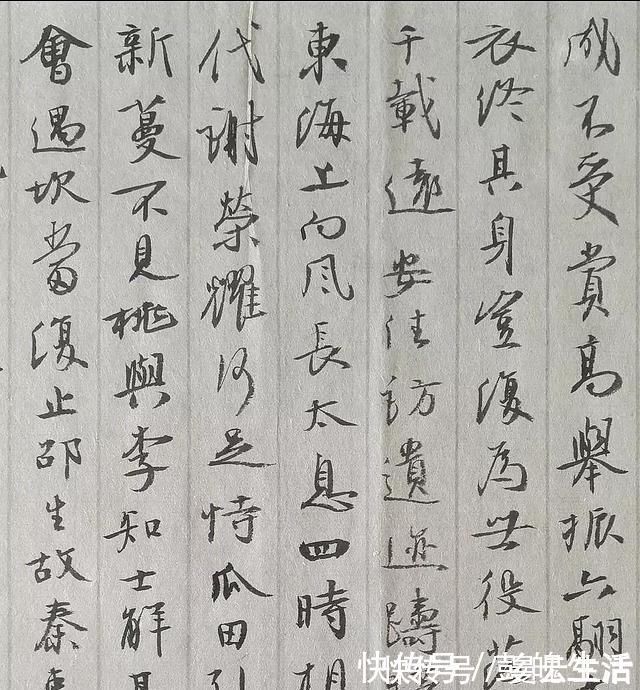 成不受賞高舉振六翮
衣終其身豈復為世役
千載遠安往訪遺迹躊
東海上向風長太息四時相
代謝榮耀何足恃瓜田引
新蔓不見桃與李知士解
會遇坎當復止邵生故秦
快传号/
生活